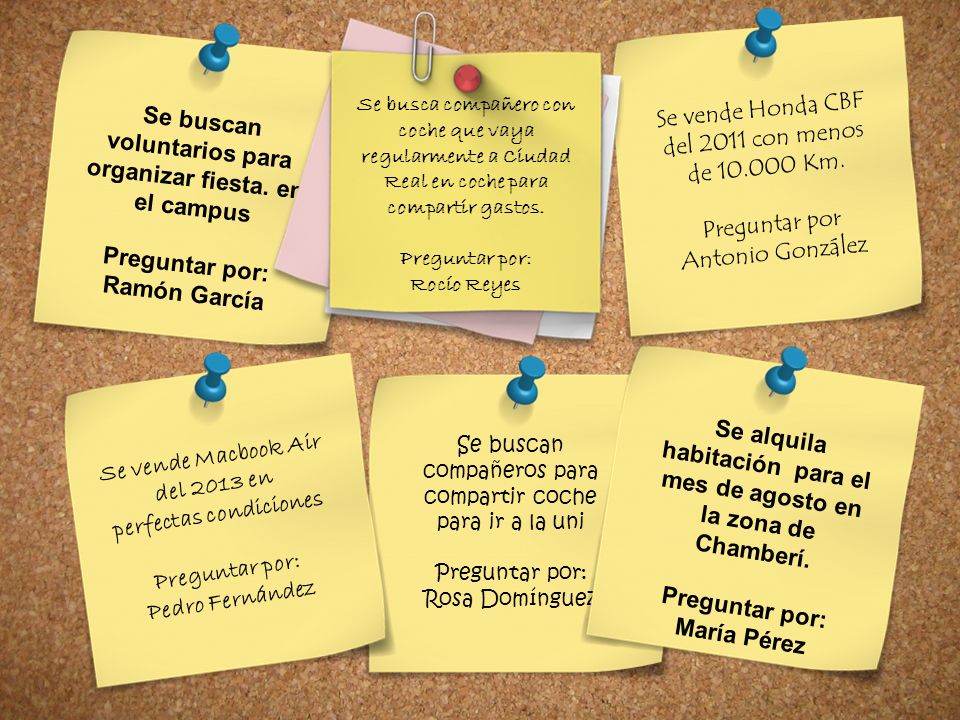 Se buscan
voluntarios para
organizar fiesta. en
el campus
Preguntar por:
Ramón García
Se busca compañero con
coche que vaya
regularmente a Ciudad
Real en coche para
compartir gastos.
Preguntar por:
Rocío Reyes
Se vende Honda CBF
del 2011 con menos
de 10.000 Km.
Preguntar por
Antonio González
Se vende Macbook Air
del 2013 en
perfectas condiciones
Preguntar por:
Pedro Fernández
Se buscan
compañeros para
compartir coche
para ir a la uni
Preguntar por:
Rosa Domínguez
Se alquila
habitación para el
mes de agosto en
la zona de
Chamberí.
Preguntar por:
María Pérez